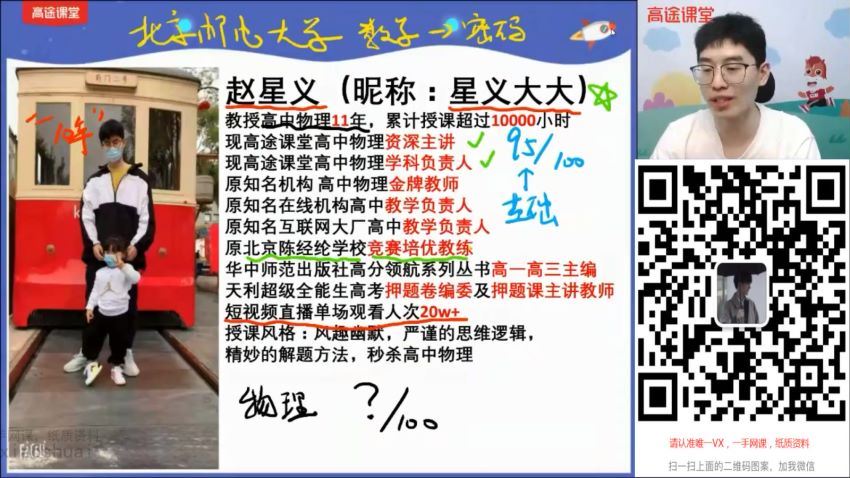 高途课堂
北京邮电大学 数字→密码
高途课堂
前门二号
"10年"
赵星义（昵称：星义大大）
教授高中物理11年，累计授课超过10000小时
现高途课堂高中物理资深主讲
现高途课堂高中物理学科负责人
原知名机构 高中物理金牌教师
原知名在线机构高中教学负责人
原知名互联网大厂高中教学负责人
原北京陈经纶学校竞赛培优教练
华中师范出版社高分领航系列丛书高一高三主编
天利超级全能生高考押题卷编委及押题课主讲教师
短视频直播单场观看人次20w+
授课风格：风趣幽默，严谨的思维逻辑，
精妙的解题方法，秒杀高中物理
95/100
↑
基础
物理 ?/100
手网课，纸质资料
请认准唯一VX，一手网课，纸质资料
扫一扫上面的二维码图案，加我微信